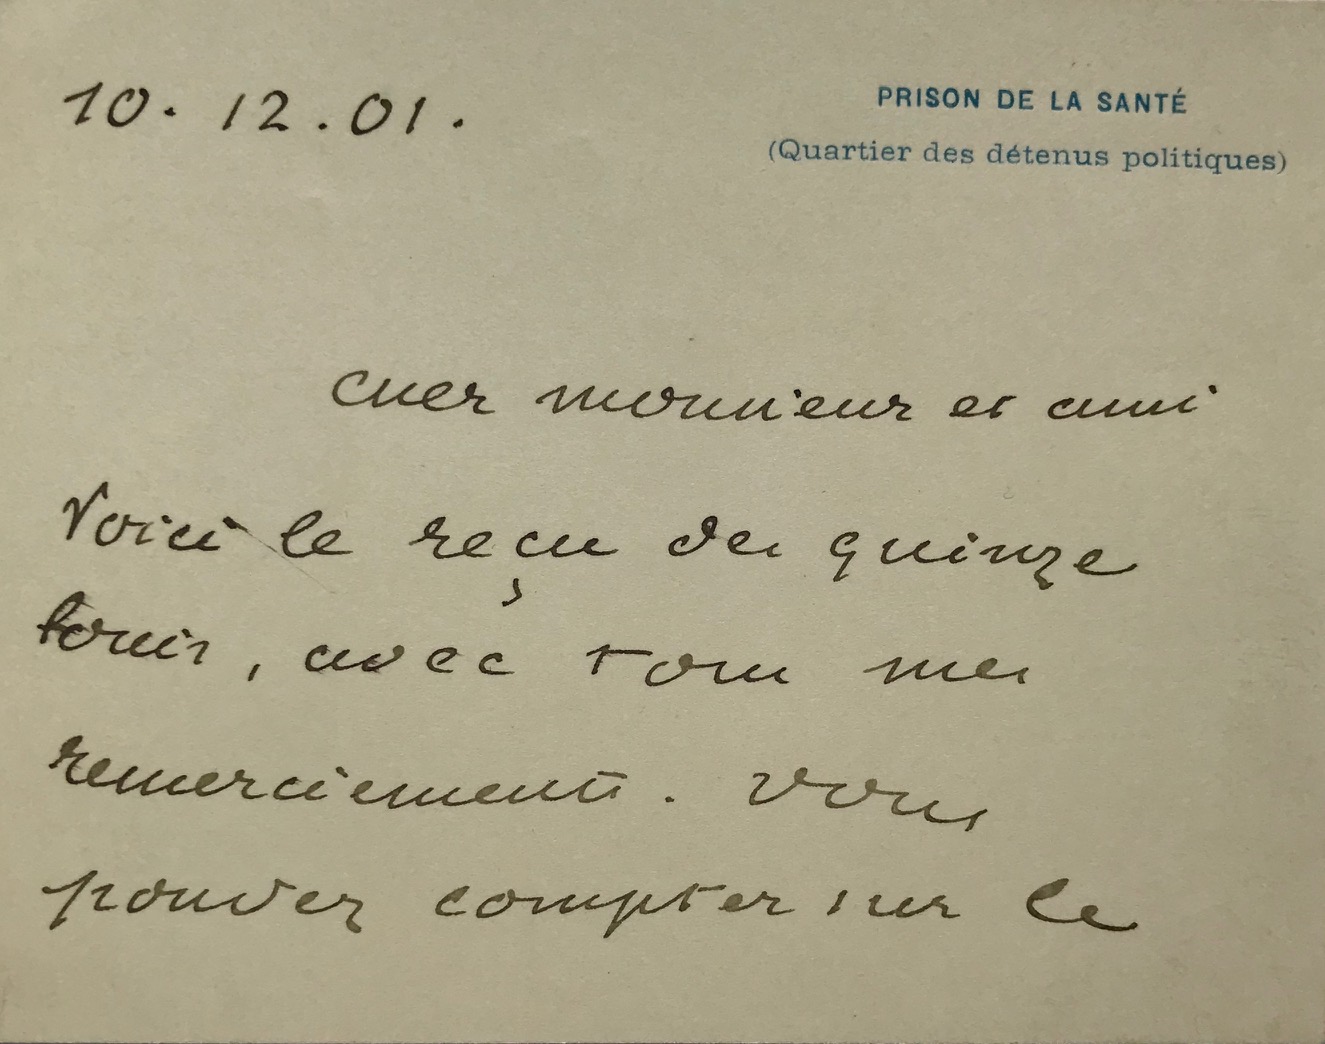 10. 12. 01.
PRISON DE LA SANTÉ
(Quartier des détenus politiques)
cher monsieur et ami
Voici le reçu des quinze
louis, avec tous mes
remerciements. Vous
pouvez compter sur le